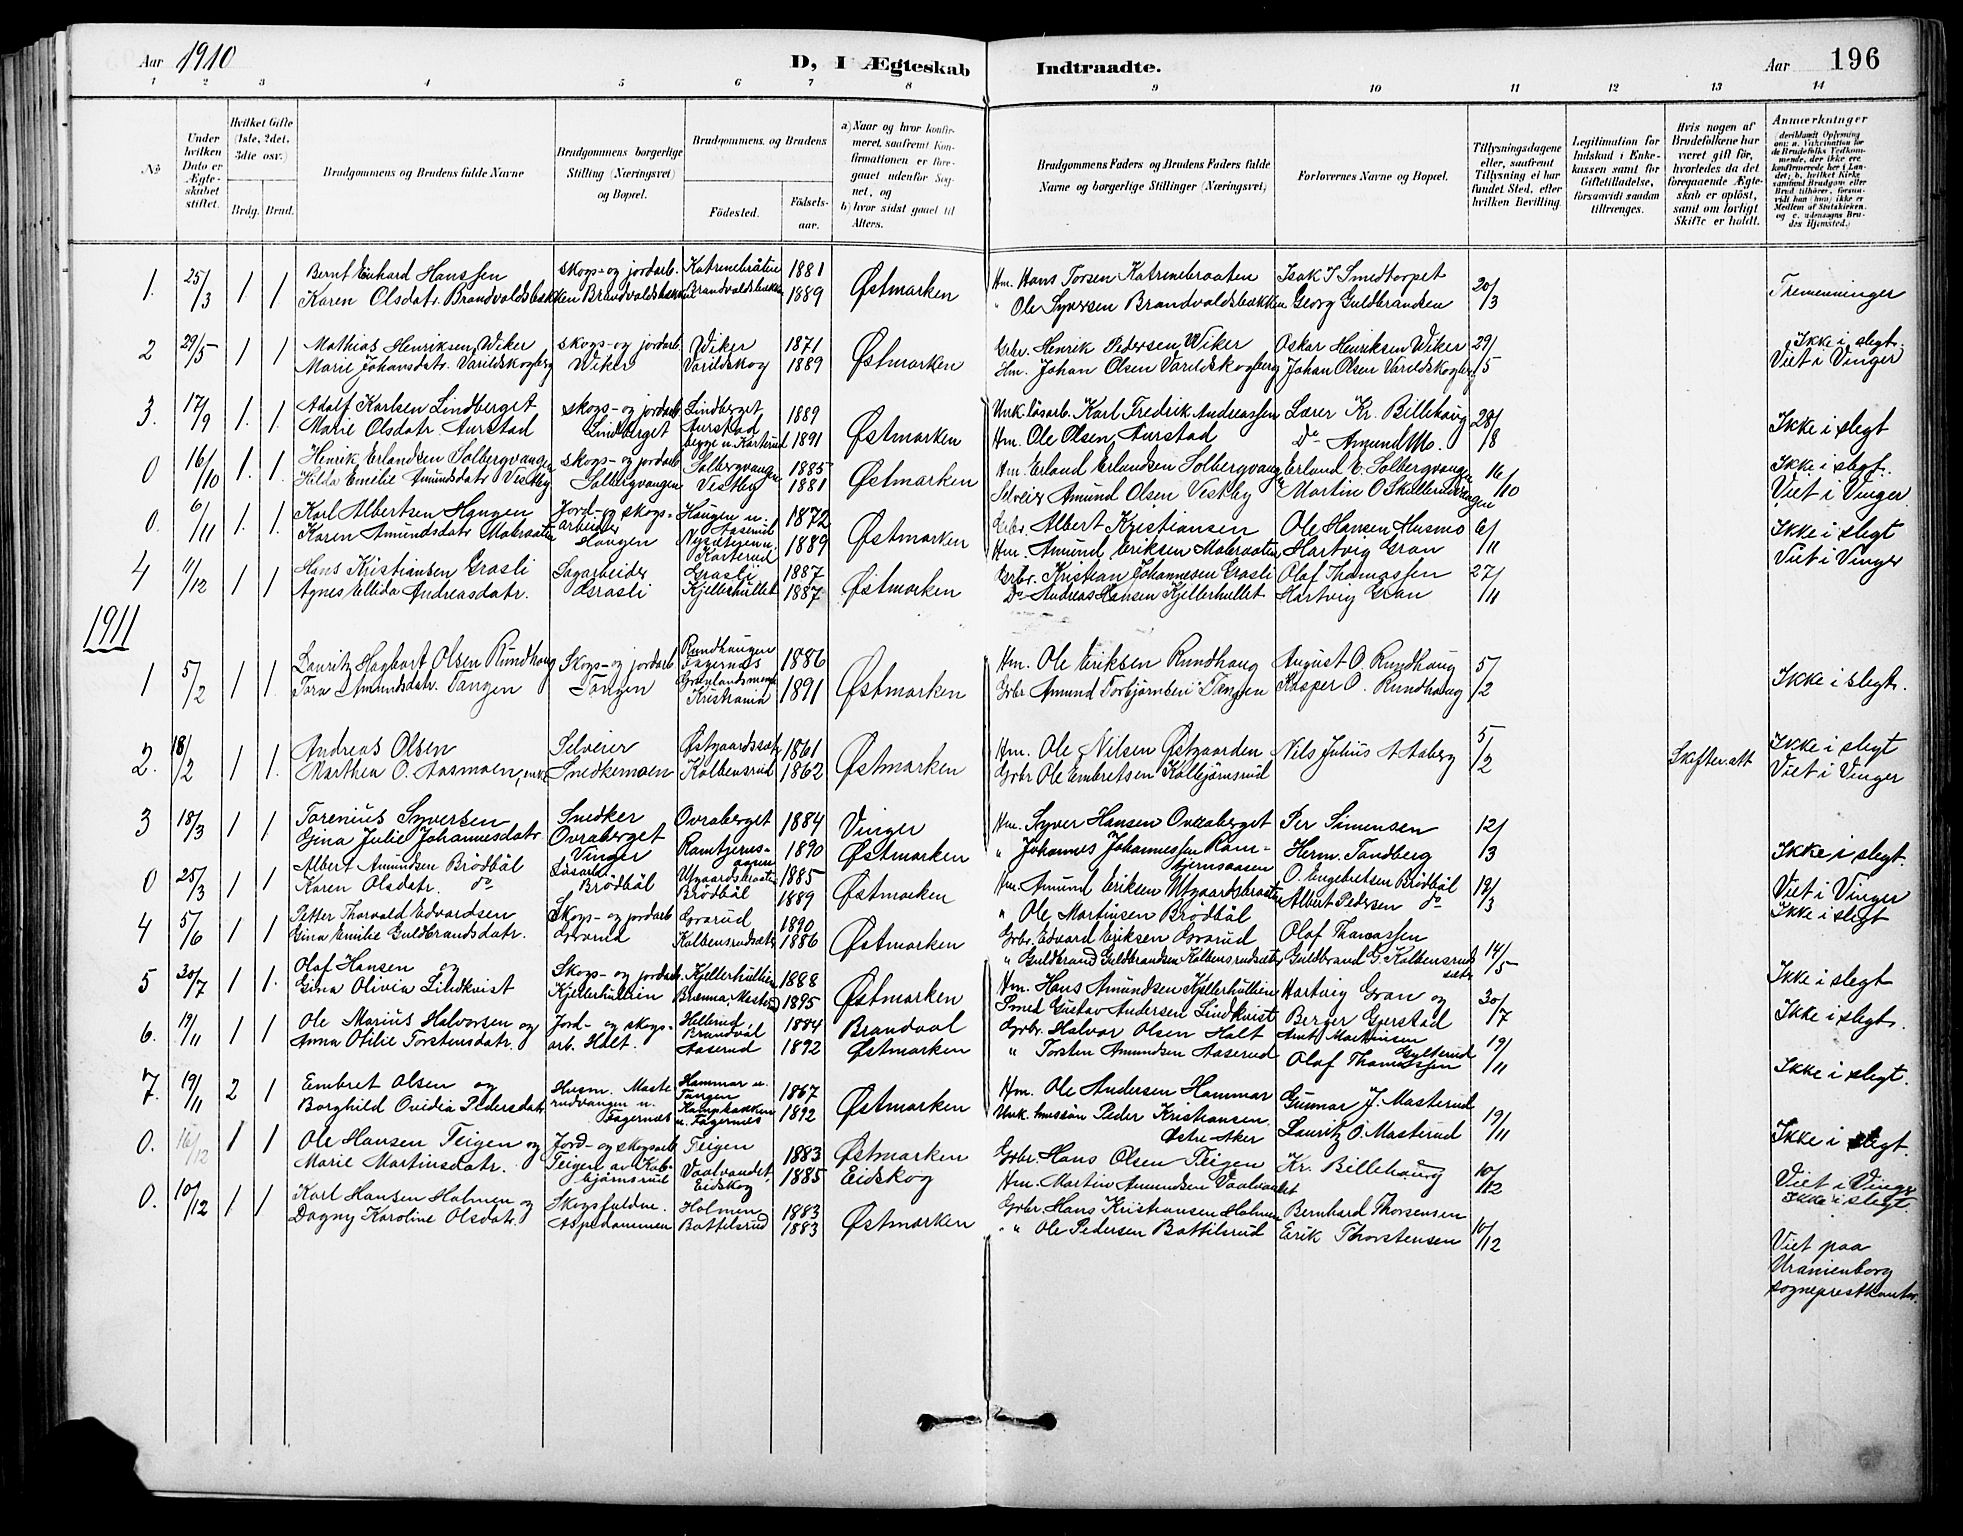 Aar 1910
D, I Ægteskab Indtraadte.
Aar 196
1 2 3 4 5 6 7 8 9 10 11 12 13 14
No
Under hvilken Dato er Ægteskabet stiftet.
Hvilket Gifte (1ste, 2det, 3die osv.)
Brdg. Brud.
Brudgommens og Brudens fulde Navne
Brudgommens borgerlige Stilling (Næringsvei) og Bopæl.
Brudgommens og Brudens
Fødested.
Fødselsaar.
a) Naar og hvor konfirmeret, saafremt Konfirmationen er foregaaet udenfor Sognet, og
b) hvor sidst gaaet til Alters.
Brudgommens Faders og Brudens Faders fulde Navne og borgerlige Stillinger (Næringsvei)
Forlovernes Navne og Bopæl.
Tillysningsdagene eller, saafremt Tillysning ei har fundet Sted, efter hvilken Bevilling.
Legitimation for Indskud i Enkekassen samt for Giftetilladelse, forsaavidt saadan tiltrænges.
Hvis nogen af Brudefolkene har været gift før, hvorledes da det foregaaende Ægteskab er opløst, samt om lovligt Skifte er holdt.
Anmærkninger
deriblandt Oplysning om: a. Vakcination for de Brudefolks Vedkommende, der ikke ere konfirmerede her i Landet; b. hvilket Kirkesamfund Brudgom eller Brud tilhører, forsaavidt han (hun) ikke er Medlem af Statskirken, og c. udensogns Brudes Hjemsted.)
1. 25/3 1 1. Bernt Enhard Hanssen skogs- og jordarb. Katrinebråten 1881 Østmarken Hm. Hans Torsen Katrinebraaten Isak J Smedtorpet 20/3 Tremenninger
Karen Olsdatr. Brandvoldsbækken Brandvoldsbækken Brandvoldsbækken 1889 " Ole Syversen Brandvoldsbækken Georg Guldbrandsen
2 29/5 1 1. Mathias Henriksen Wiker skogs- og jordarb. Wiker 1871 Østmarken Grbr. Henrik Pedersen Wiker Oskar Henriksen Wiker 29/5 Ikke i slegt.
Marie Johansdatr. Varildskogberg Wiker Varildskog 1889 Hm. Johan Olsen Varildskogberg Johan Olsen Varildskogberg Viet i Vinger
3. 17/9 1. 1. Adolf Karlsen Lindberget skogs- og jordarb Lindberget 1889 Østmarken Unk. løsarb. Karl Fredrik Andreassen Lærer Kr. Billehaug 28/8 Ikke i slegt
Marie Olsdatr. Aurstad Lindberget Aurstad begge u. Karterud 1891 Hm. Ole Olsen Aurstad Do Amund Mo.
0 16/10 1. 1. Henrik Erlandsen Solbergvangen skogs- og jordarb Solbergvangen 1885 Østmarken Hm. Erland Erlandsen Solbergvangen Erland E. Solbergvangen 16/10 Ikke i slegt.
Hilda Emelie Amundsdatr Vestby Solbergvangen Vestby 1881 Selveier Amund Olsen Vestby Martin O Viet i Vinger
0. 6/11 1. 1. Karl Albertsen Haugen Jord- og skogs- Haugen u. Aaserud 1872 Østmarken Grbr. Albert Kristiansen Ole Hansen Husmo 6/11 Ikke i slegt
Karen Amundsdatr Maleraaten arbeider Haugen Nysæteren u. Karterud 1889 Hm. Amund Eriksen Maleraaten Hartvig Gran Viet i Vinger
4 11/12 1 1 Hans Kristiansen Grasli Sagarbeider Grasli 1887 Østmarken Grbr. Kristian Johannesen Grasli Olaf Thomassen 27/11
Agnes Ellida Andreasdatr. Grasli Kjellerhullet 1887 Do Andreas Hansen Kjellerhullet Hartvig Gran
1911
1 5/2 1 1. Lauritz Hagbart Olsen Rundhaug Skogs- og jordarb Rundhaugen Fagernes 1886 Østmarken Hm. Ole Eriksen Rundhaug August O. Rundhaug 5/2 Ikke i slegt.
Tora Amundsdatr. Tangen Tangen Kristiania 1891 Grbr Amund Torbjörnsen Tangen Kasper O. Rundhaug
2. 18/2 1 1. Andreas Olsen Selveier Østgaardssæt. 1861 Østmarken Hm. Ole Nilsen Østgaarden Nils Julius A Aaberg 5/2 Skiften.att Ikke i slegt
Marthea O. Aasmoen, enke Snedkemoen Kolbensrud 1862 Grbr Ole Embretsen Kolbjørnsrud Viet i Vinger
3 18/3 1 1 Torenius Syversen Snedker Ovraberget 1884 Vinger Hm. Syver Hansen Ovraberget Per Simensen 12/3 Ikke i slegt.
Gina Julie Johannesdatr. Ovraberget Vinger Ramtjernsaasen 1890 Østmarken " Johannes Johannessen Ramtjernsaasen Herm. Tandberg
0 25/3 1 1 Albert Amundsen Brödböl Løsarb. Utgaardsbraaten 1885 Østmarken Hm. Amund Eriksen Utgaardsbraaten O. Engebretsen Brödböl 12/3 Viet i Vinger
Karen Olsdatr. do Brödböl Brödböl 1889 " Ole Martinsen Brödböl Albert Pedersen do Ikke i slegt
4 5/6 1 1 Petter Thorvald Edvardsen Skogs- og jordarb Gvarud 1890 Østmarken Grbr. Edvard Eriksen Gvarud Olaf Thomassen 14/5
Gina Emilie Guldbrandsdatr. Gvarud Kolbensrudsæt. 1886 " Guldbrand Guldbrandsen Kolbensrudsæter Guldbrand G. Kolbensrudsæte
5 30/7 1 1. Olaf Hansen og Skogs- og jordarb. Kjellerhullien 1888 Østmarken Hm. Hans Amundsen Kjellerhullien Hartvig Gran og 30/7 Ikke i slegt
Gina Olivia Lindkvist Kjellerhullien Brænna, Masterud 1895 Smed Gustav Andersen Lindkvist Berger Gjerstad
6. 19/11 1 1 Ole Marius Halvorsen og Jord- og skogs- Hellerud Brandvål 1884 Brandval Grbr. Halvor Olsen Halt Amt Martinsen Gylterud 19/11 Ikke i slegt.
Anna Otilie Torstensdatr. arb. Halt. Aaserud 1892 Østmarken " Torsten Amundsen Aaserud Olaf Thomassen
7. 19/11 2 1 Embret Olsen og Husm. Masterudvangen u. Fagernes Hammar u. Tangen 1867 Østmarken Hm. Ole Andersen Hammar Gunnar J. Masterud 19/11 Ikke i slegt.
Borghild Ovidia Pedersdatr Kampbakken u. Fagernes 1892 Unk. Peder Kristiansen Østre Aker Lauritz O. Masterud
0. 16/12 1 1 Ole Hansen Teigen og Jord- og skogsarb Teigen 1883 Østmarken Grbr. Hans Olsen Teigen Kr. Billehaug 10/12 Ikke i slegt.
Marie Martinsdatr. Teigen av Kolbjörnsrud Vaalvandet, Eidskog 1885 Eidskog Hm. Martin Amundsen Vaalvandet Viet i Vinger
0. 10/12 1 1 Karl Hansen Holmen og Skogsfuldm. Holmen 1883 Østmarken Grbr. Hans Kristiansen Holmen Bernhard Thorsensen 10/12 Ikke i slegt
Dagny Karoline Olsdatr. Aspedammen Bottilsrud 1883 " " Ole Pedersen Bottilsrud Erik Thorstensen
Viet paa
Uranienborg
sogneprestkontor.